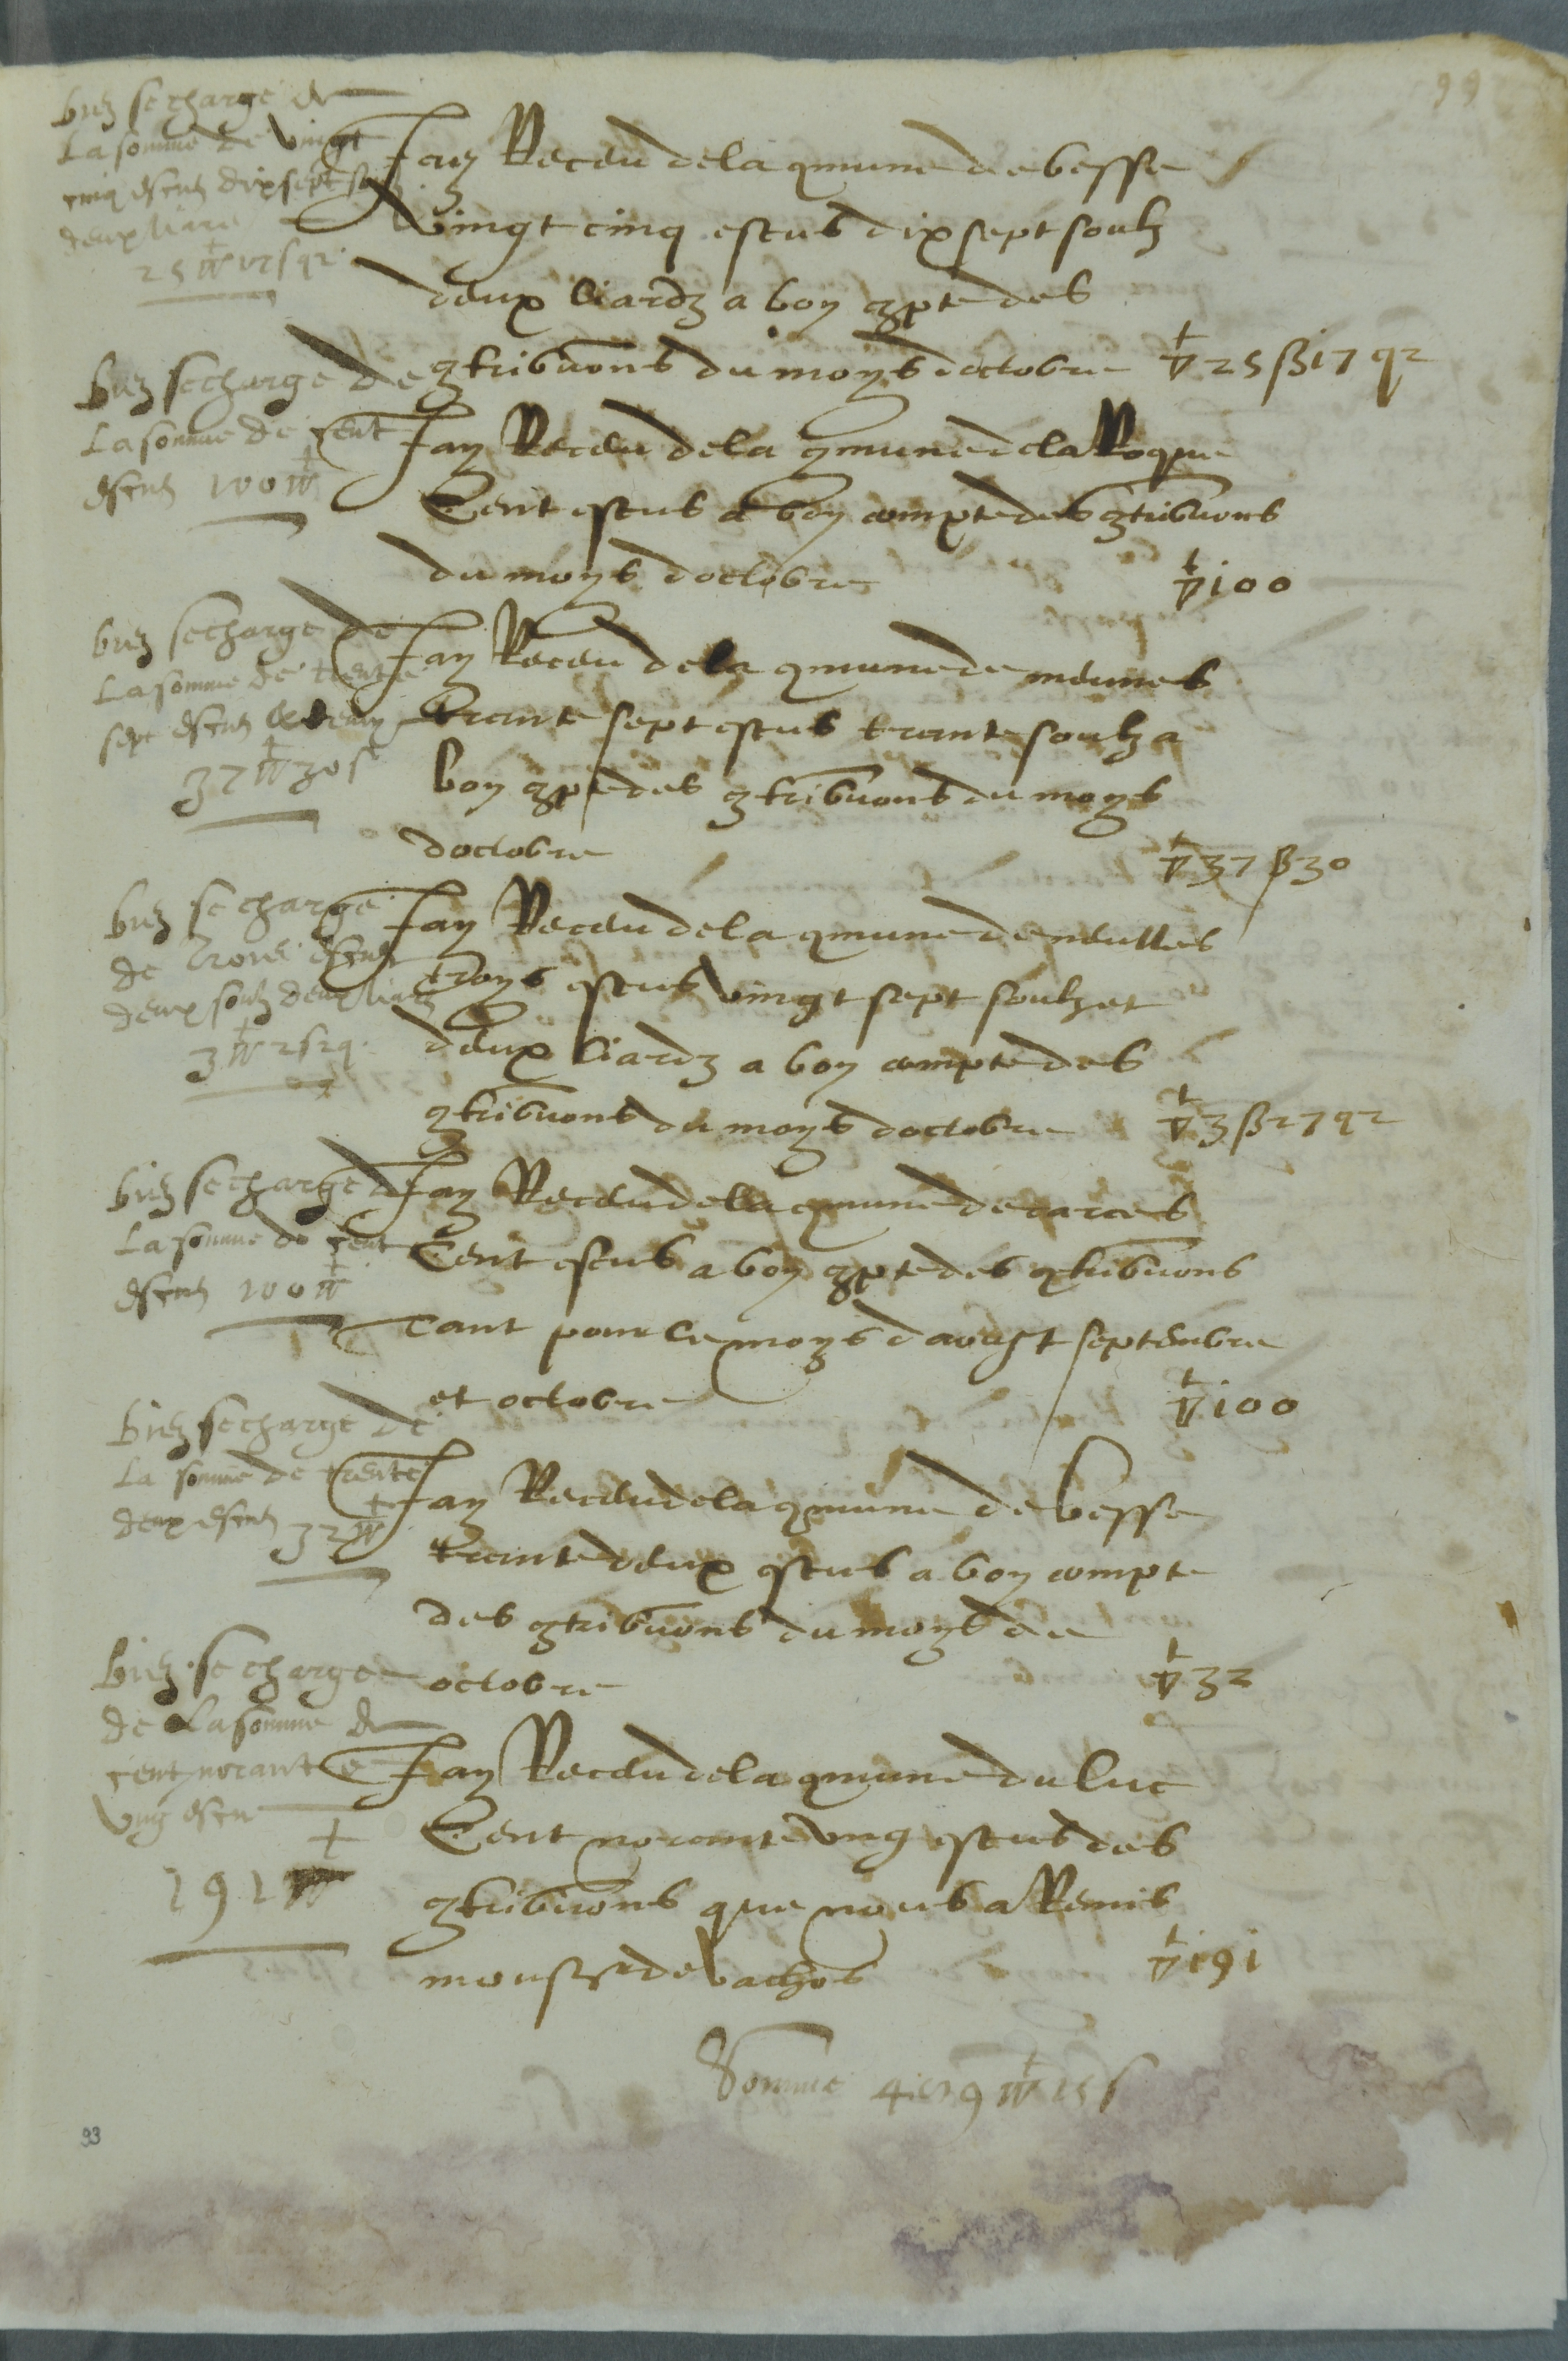 99
Biē se charge de
La somme de vingt
cinq escus dix sept solz
deux liars
25 ▽ 17 s q 2
Jay Receu de la cõmune de besse
vingt cinq escus dix sept soulz
deux liardz a bon cõpte des
cõtribuõns du moys doctobre ▽ 25 ß 17 q 2
Biē se charge de
La somme de cent
escus 100 ▽
Jay Receu de la cõmune de la Roque
Cent escus a bon compte des cõtribuõns
du moys doctobre ▽ 100
Biē se charge de
La somme de trente
sept escus & demy
37 ▽ 30 s
Jay Receu de la cõmune de meunes
trante sept escus trante soulz a
bon cõpte des cõtribuõns du moys
doctobre ▽ 37 ß 30
Biē se charge
de Trois escus
deux solz deux liars
3 ▽ 2 s 2 q
Jay Receu de la cõmune de neulles
troys escus vingt sept soulz et
deux liardz a bon compte des
cõtribuõns du moys doctobre ▽ 3 ß 27 q 2
Biē se charge de
La somme de cent
escus 100 ▽
Jay Receu de la cõmune de carces
Cent escus a bon cõpte des cõtribuõns
Tant pour le moys davost septembre
et octobre ▽ 100
Biē se charge de
La somme de trente
deux escus 32 ▽
Jay Receu de la cõmune de besse
trante deux escus a bon compte
des cõtribuõns du moys de
octobre ▽ 32
Biē se charge
de La somme de
cent norante
ung escu
191 ▽
Jay Receu de la cõmune du luc
Cent norante ung escus des
cõtribuõns que nous a Remis
monsr de bachos ▽ 191
Somme ▽ 15 s
93